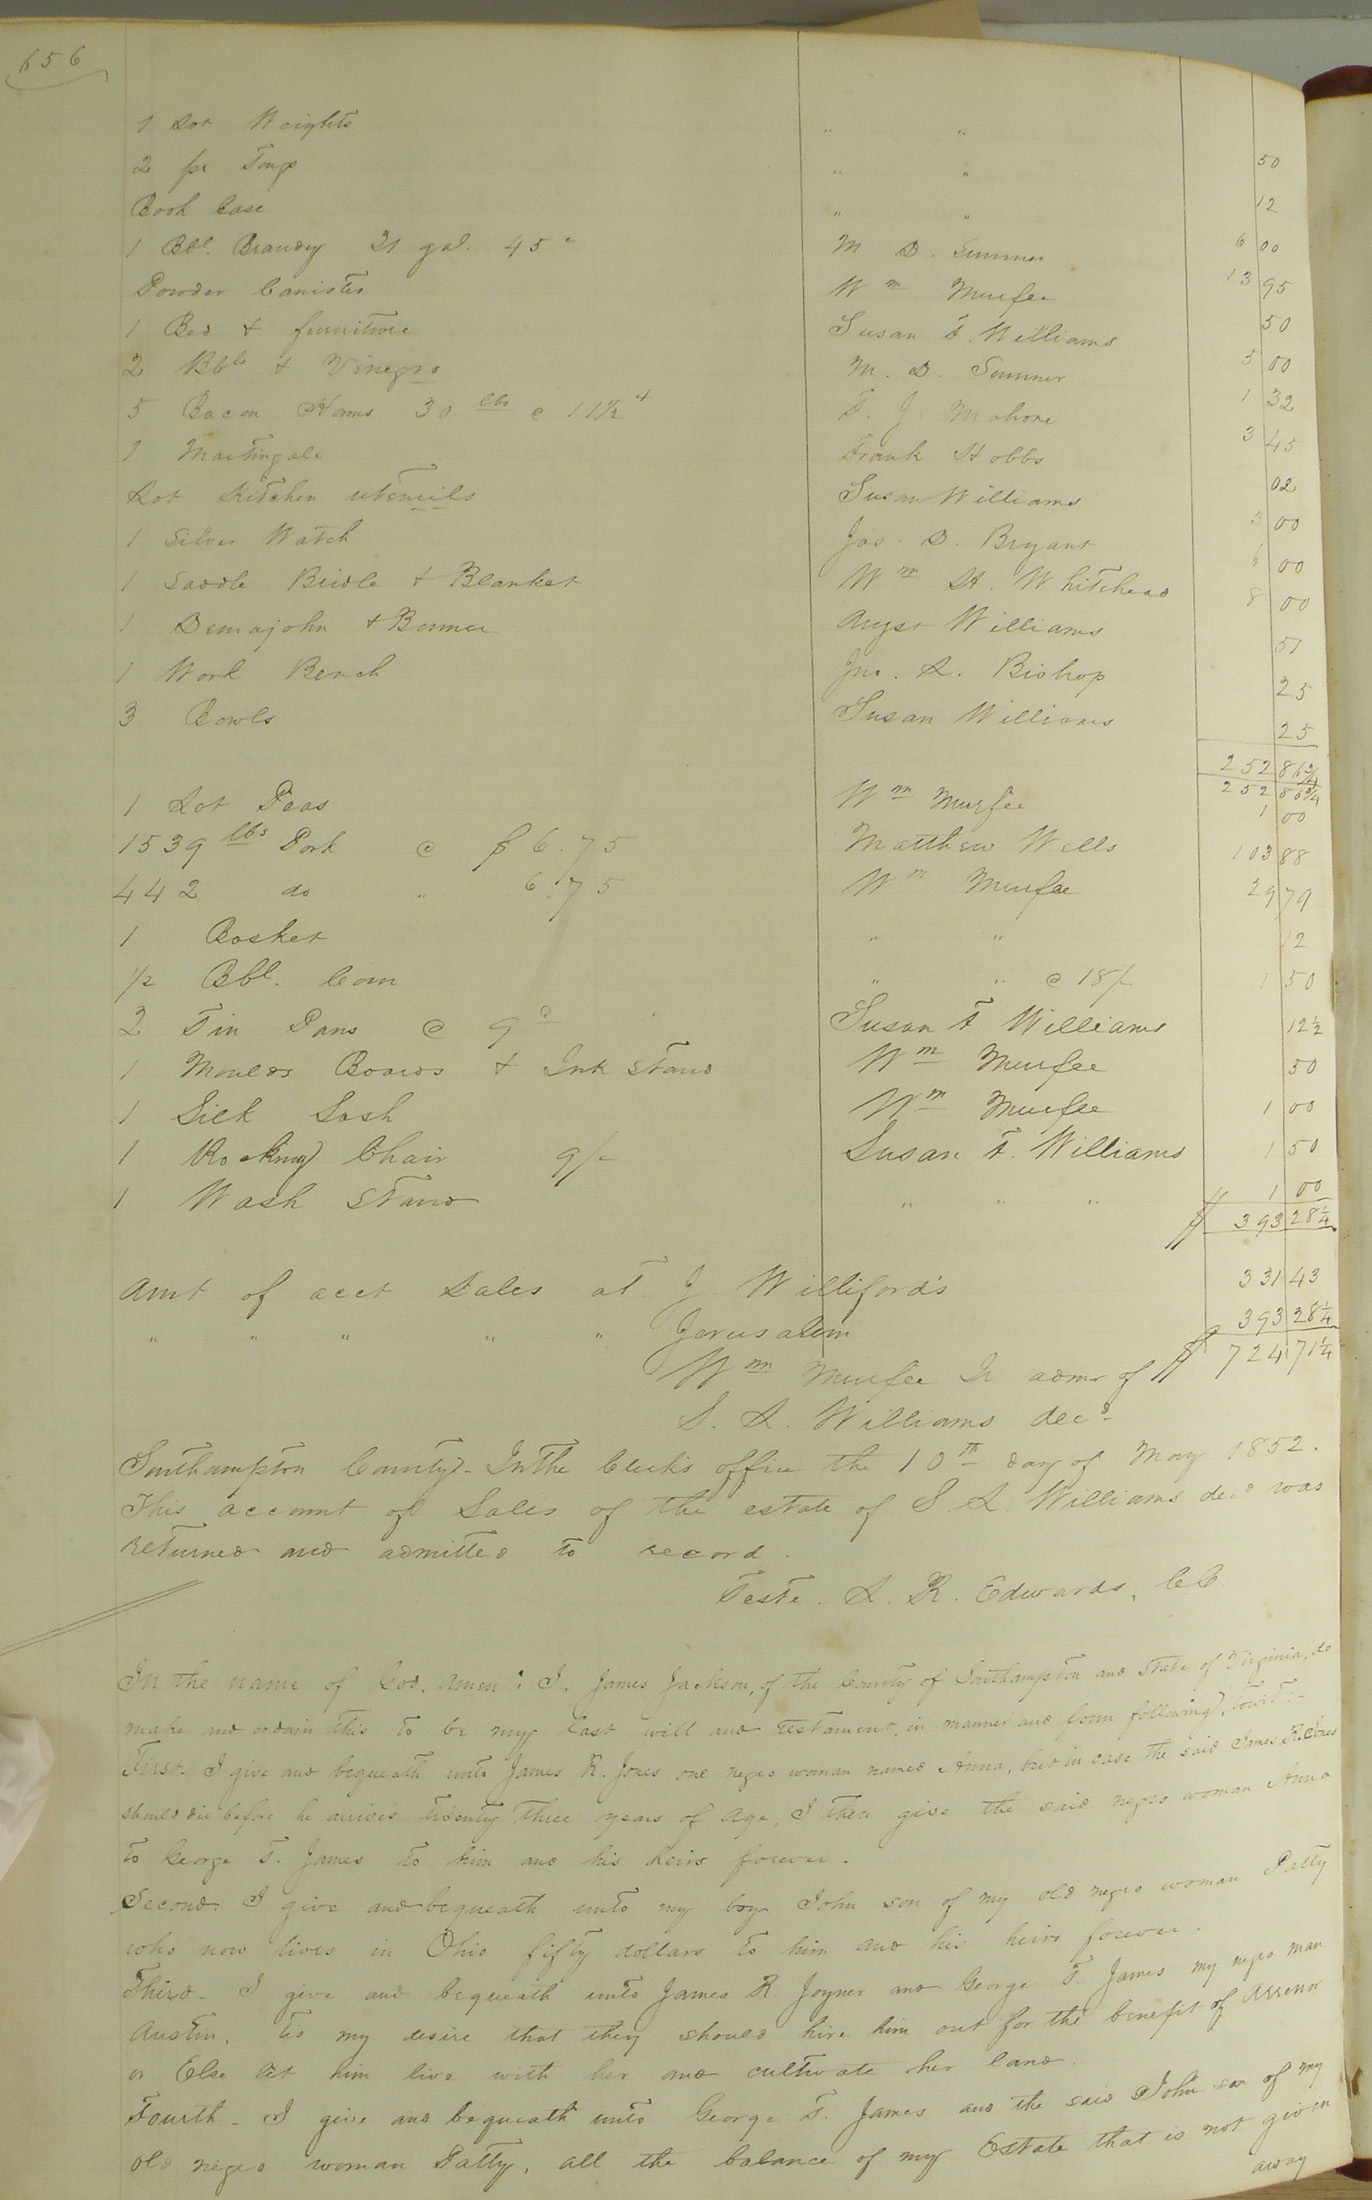 656
1 Lot Weights " " 50
2 pr Tongs " " 12
Book Case " " 6 00
1 Bbl. Brandy 31 gal. 45 c M D. Sumner 13 95
Powder Canister Wm Murfee 50
1 Bed & furniture Susan F. Williams 5 00
2 Bbls & Vinegro M. D. Sumner 1 32
5 Bacon Hams 30 lbs @ 11½ cts T. J. Mahone 3 45
1 Martingale Frank Hobbs 02
Lot Kitchen utensils Susan Williams 3 00
1 Silver Watch Jas. D. Bryant 6 00
1 Saddle Bridle & Blanket Wm H. Whitehead 8 00
1 Demajohn & Bounce Augst Williams 51
1 Work Bench Jno. L. Bishop 25
3 Bowls Susan Williams 25
252 86¾
252 86¾
1 Lot Peas Wm Murfee 1 00
1539 lbs Pork @ $6.75 Matthew Wells 103 88
442 do " 6.75 Wm Murfee 29 79
1 Basket " " 12
1/2 Bbl. Corn " " @ 18/- 1 50
2 Tin Pans @ 9 d Susan F Williams 12½
1 Moulds Boards & Ink Stand Wm Murfee 50
1 Silk Sash Wm Murfee 1 00
1 Rocking Chair 9/- Susan F. Williams 1 50
1 Wash Stand " " " 1 00
$ 393 28¼
Amt of acct Sales at J Williford's 331 43
" " " " " Jerusalem 393 28¼
Wm Murfee Jr admr of $ 724 71¼
S. L. Williams decd
Southampton County. In the Clerk's office the 10th day of May 1852.
This account of Sales of the estate of S L Williams decd was
returned and admitted to record.
Teste. L. R. Edwards, CC
In the name of God. Amen: I. James Jackson, of the County of Southampton and State of Virginia, do
make and ordain this to be my last will and testament, in manner and form following, towit:-
First. I give and bequeath unto James R. Jones one negro woman named Anna, but in case the said James R. Jones
should die before he arrives twenty three years of age, I then give the said negro woman Anna
to George T. James to him and his heirs forever.
Second. I give and bequeath unto my boy John son of my old negro woman Patty
who now lives in Ohio fifty dollars to him and his heirs forever.
Third. I give and bequeath unto James R. Joyner and George T. James my negro man
Austin. tis my desire that they should hire him out for the benefit of
or Else let him live with her and cultivate her land.
Fourth. I give and bequeath unto George T. James and the said John son of my
old negro woman Patty, all the balance of my Estate that is not given
away